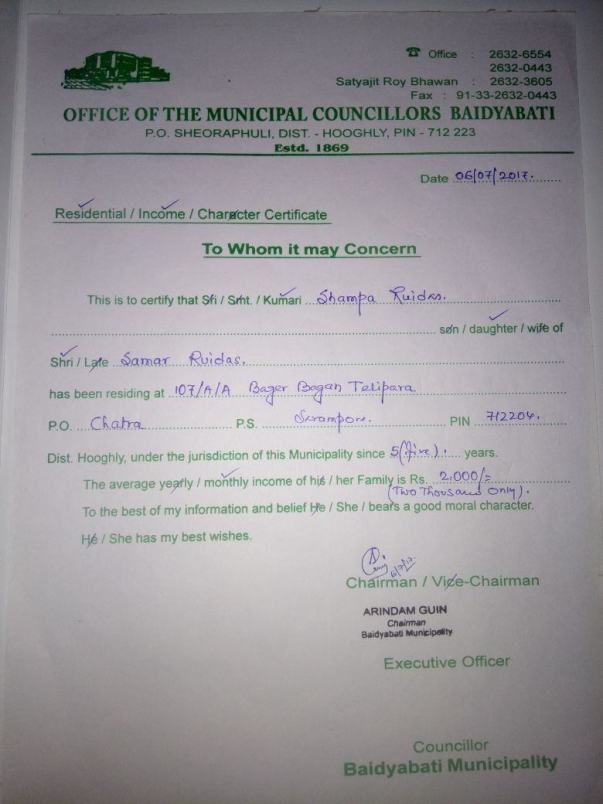 ☎ Office : 2632-6554
2632-0443
Satyajit Roy Bhawan : 2632-3605
Fax : 91-33-2632-0443
OFFICE OF THE MUNICIPAL COUNCILLORS BAIDYABATI
P.O. SHEORAPHULI, DIST. - HOOGHLY, PIN - 712 223
Estd. 1869
Date 06/07/2017.
Residential / Income / Character Certificate
To Whom it may Concern
This is to certify that Sri / Smt. / Kumari Shampa Ruidas.
son / daughter / wife of
Shri / Late Samar Ruidas.
has been residing at 107/A/A Bager Bagan Telipara
P.O. Chatra P.S. Serampore. PIN 712204.
Dist. Hooghly, under the jurisdiction of this Municipality since 5(five). years.
The average yearly / monthly income of his / her Family is Rs. 2,000/=
(Two Thousand Only).
To the best of my information and belief He / She / bears a good moral character.
He / She has my best wishes.
6/7/17
Chairman / Vice-Chairman
ARINDAM GUIN
Chairman
Baidyabati Municipality
Executive Officer
Councillor
Baidyabati Municipality